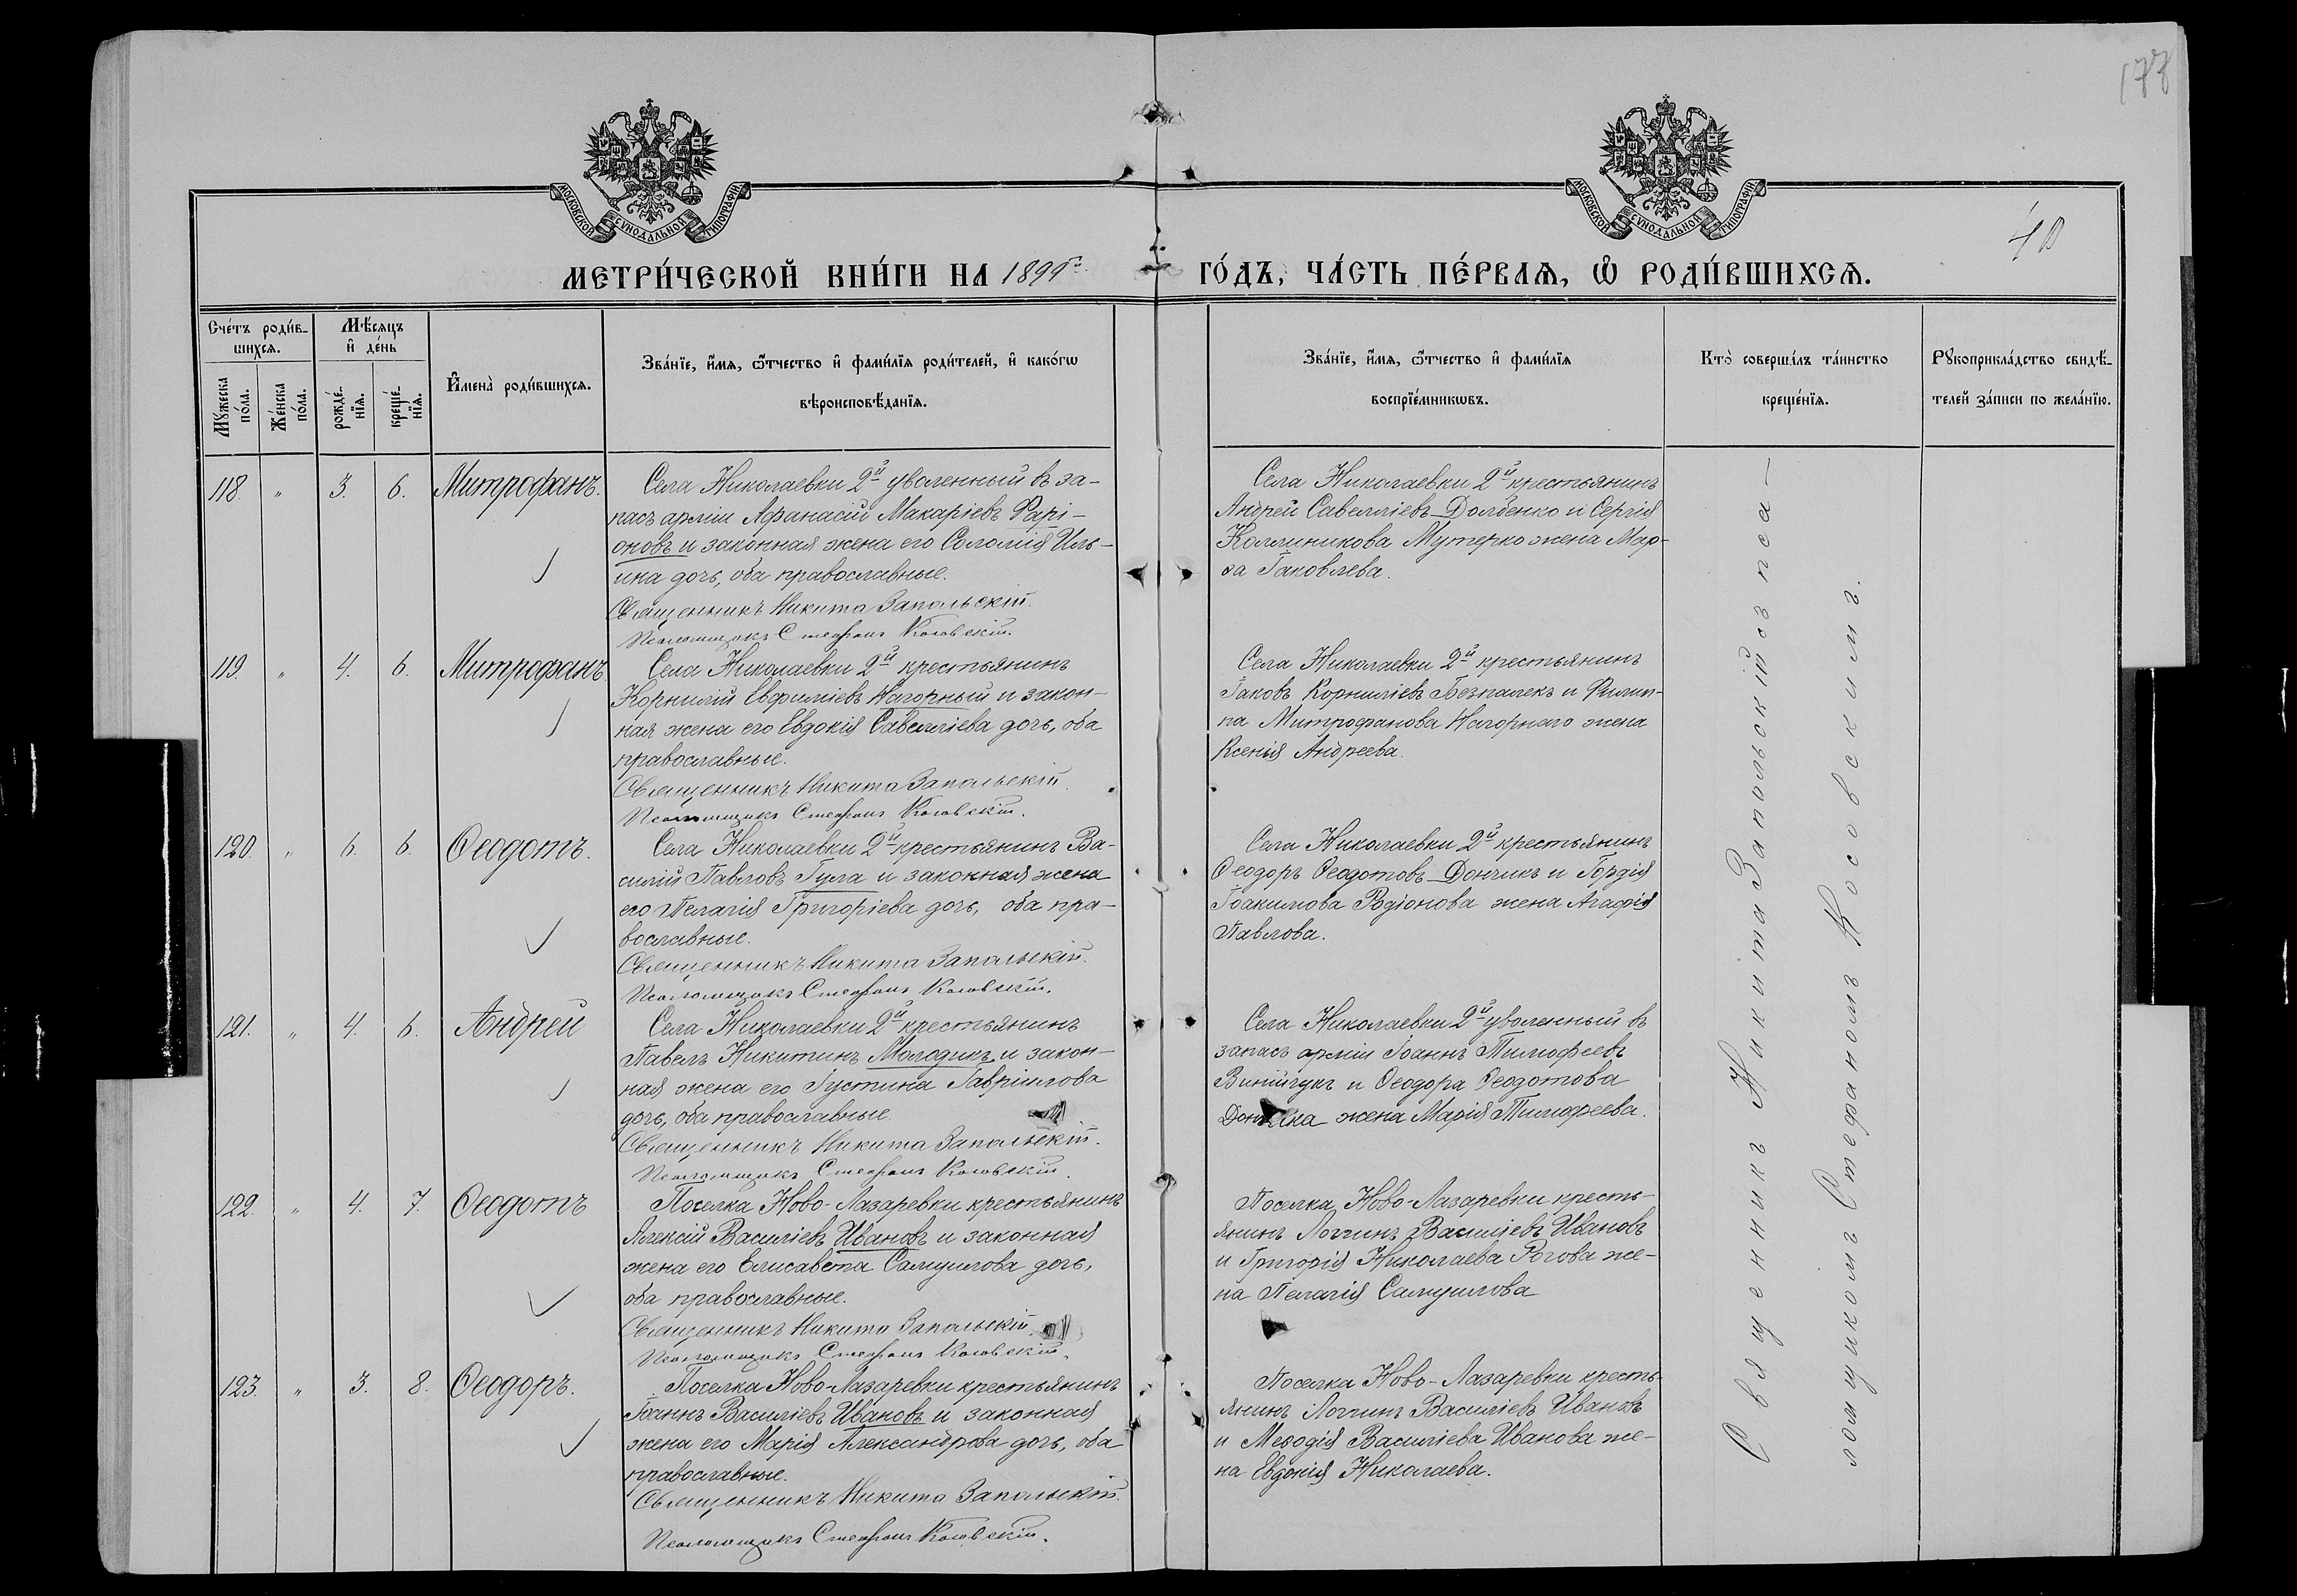 177
40
МОСКОВСКОЙ СУНОДАЛЬНОЙ ТИПОГРАФІИ
МОСКОВСКОЙ СУНОДАЛЬНОЙ ТИПОГРАФІИ
МЕТРИ́ЧЕСКОЙ КНИ́ГИ НА 1895й ГО́ДЪ, ЧА́СТЬ ПЕ́РВАѦ, Ѽ РОДИ́ВШИХСѦ.
Сче́тъ роди́в-
шихсѧ.
Мѣ́сѧцъ
и҆ де́нь
Мꙋ́жеска по́ла.
Же́нска по́ла.
рожде́-
нїѧ.
креще́-
нїѧ.
И҆мена̀ роди́вшихсѧ.
Зва́нїе, и҆́мѧ, ѻ҆́тчество и҆ фами́лїѧ роди́телей, и҆ како́гѡ
вѣроисповѣ́данїѧ.
Зва́нїе, и҆́мѧ, ѻ҆́тчество и҆ фами́лїѧ
воспрїе́мникѡвъ.
Кто̀ соверша́лъ та́инство
креще́нїѧ.
Рꙋкоприкла́дство свидѣ́-
телей за́писи по жела́нїю.
118. " 3. 6. Митрофанъ.
Села Николаевки 2й уволенный въ за-
пасъ арміи Афанасій Макаріевъ Фарі-
оновъ и законная жена его Соломія Иль-
ина дочь, оба православные.
Священникъ Никита Запольскій.
Псаломщикъ Стефанъ Косовскій.
Села Николаевки 2й крестьянинъ
Андрей Савелліевъ Долбенко и Сергія
Каллиникова Мутерко жена Мар-
ѳа Іаковлева.
119. " 4. 6. Митрофанъ
Села Николаевки 2й крестьянинъ
Корнилій Евфиміевъ Нагорный и закон-
ная жена его Евдокія Савелліева дочь, оба
православные.
Священникъ Никита Запольскій.
Псаломщикъ Стефанъ Косовскій.
Села Николаевки 2й крестьянинъ
Іаковъ Корниліевъ Безпалекъ и Филип-
па Митрофанова Нагорнаго жена
Ксенія Андреева.
120. " 6. 6. Ѳеодотъ.
Села Николаевки 2й крестьянинъ Ва-
силій Павловъ Гула и законная жена
его Пелагія Григоріева дочь, оба пра-
вославные.
Священникъ Никита Запольскій.
Псаломщикъ Стефанъ Косовскій.
Села Николаевки 2й крестьянинъ
Ѳеодоръ Ѳеодотовъ Дончикъ и Гордія
Іоакимова Родіонова жена Агафія
Павлова.
121. " 4. 6. Андрей
Села Николаевки 2й крестьянинъ
Павелъ Никитинъ Молодикъ и закон-
ная жена его Іустина Гавріилова
дочь, оба православные.
Священникъ Никита Запольскій.
Псаломщикъ Стефанъ Косовскій.
Села Николаевки 2й уволенный въ
запасъ арміи Іоаннъ Тимофеевъ
Винничукъ и Ѳеодора Ѳеодотова
Дончика жена Марія Тимофеева.
122. " 4. 7. Ѳеодотъ
Поселка Ново-Лазаревки крестьянинъ
Алексій Василіевъ Ивановъ и законная
жена его Елисавета Самуилова дочь,
оба православные.
Священникъ Никита Запольскій.
Псаломщикъ Стефанъ Косовскій.
Поселка Ново-Лазаревки кресть-
янинъ Логгинъ Василіевъ Ивановъ
и Григорія Николаева Рогова же-
на Пелагія Самуилова
123. " 3. 8. Ѳеодоръ.
Поселка Ново-Лазаревки крестьянинъ
Іоаннъ Василіевъ Ивановъ и законная
жена его Марія Александрова дочь, оба
православные.
Священникъ Никита Запольскій.
Псаломщикъ Стефанъ Косовскій.
Поселка Ново-Лазаревки кресть-
янинъ Логгинъ Василіевъ Ивановъ
и Меѳодія Василіева Иванова же-
на Евдокія Николаева.
Священникъ Никита Запольскій съ пса-
ломщикомъ Стефаномъ Косовскимъ.